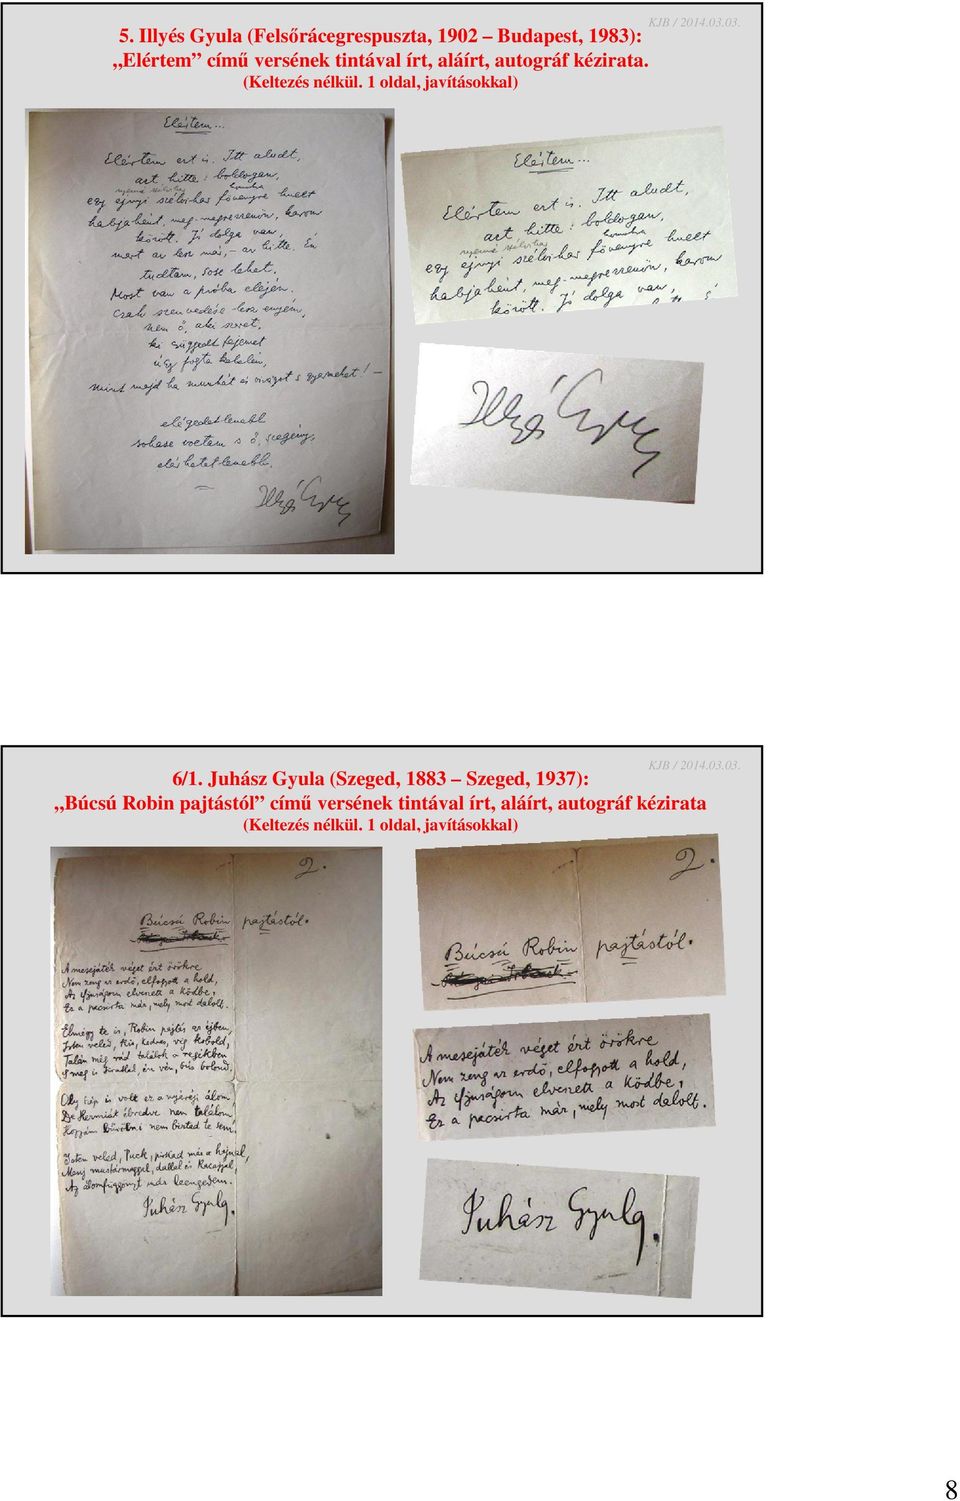 KJB / 2014.03.03.
5. Illyés Gyula (Felsőrácegrespuszta, 1902 – Budapest, 1983):
„Elértem” című versének tintával írt, aláírt, autográf kézirata.
(Keltezés nélkül. 1 oldal, javításokkal)
Elértem...
Elértem ezt is. Itt aludt,
azt hitte: boldogan,
egy éjnyi szélvihar fövenyre
habjaként, meg-megrezzenőn, karom
között. Jó dolga van,
mert az lesz már, – az hitte. Én
tudtam, sose lehet.
Most van a próba elején.
Csak szenvedése lesz enyém,
nem ő, aki szeret,
ki csüggedt fejemet
úgy fogta kebelén,
mint majd ha munkát és virágot s gyermeket! –
elégedetlenebb
sohase voltam s ő, szegény,
elérhetetlenebb.
Illyés Gyula
Elértem...
Elértem ezt is. Itt aludt,
azt hitte: boldogan,
egy éjnyi szélvihar fövenyre
habjaként, meg-megrezzenőn, karom
között. Jó dolga van,
Illyés Gyula
KJB / 2014.03.03.
6/1. Juhász Gyula (Szeged, 1883 – Szeged, 1937):
„Búcsú Robin pajtástól” című versének tintával írt, aláírt, autográf kézirata
(Keltezés nélkül. 1 oldal, javításokkal)
2.
Búcsú Robin pajtástól.
A mesejáték véget ért örökre
Nem zeng az erdő, elfogyott a hold,
Az ifjuságom elveszett a ködbe,
Ez a pacsirta már, mely most dalolt.
Elmégy te is, Robin pajtás az éjben,
Isten veled, kis, kedves, víg kobold,
Talán még rád találok a regékben
S meg is siratlak, én vén, bús bolond.
Oly szép is volt ez a nyáréji álom,
De Hermiát ébredve nem találom,
Hozzám bűvölni nem birtad te sem.
Isten veled, Puck, pirkad már a hajnal,
Menj mustármaggal, dallal és kacajjal,
Az álomfüggönyt már leengedem.
Juhász Gyula
2.
Búcsú Robin pajtástól.
A mesejáték véget ért örökre
Nem zeng az erdő, elfogyott a hold,
Az ifjuságom elveszett a ködbe,
Ez a pacsirta már, mely most dalolt.
Juhász Gyula.
8